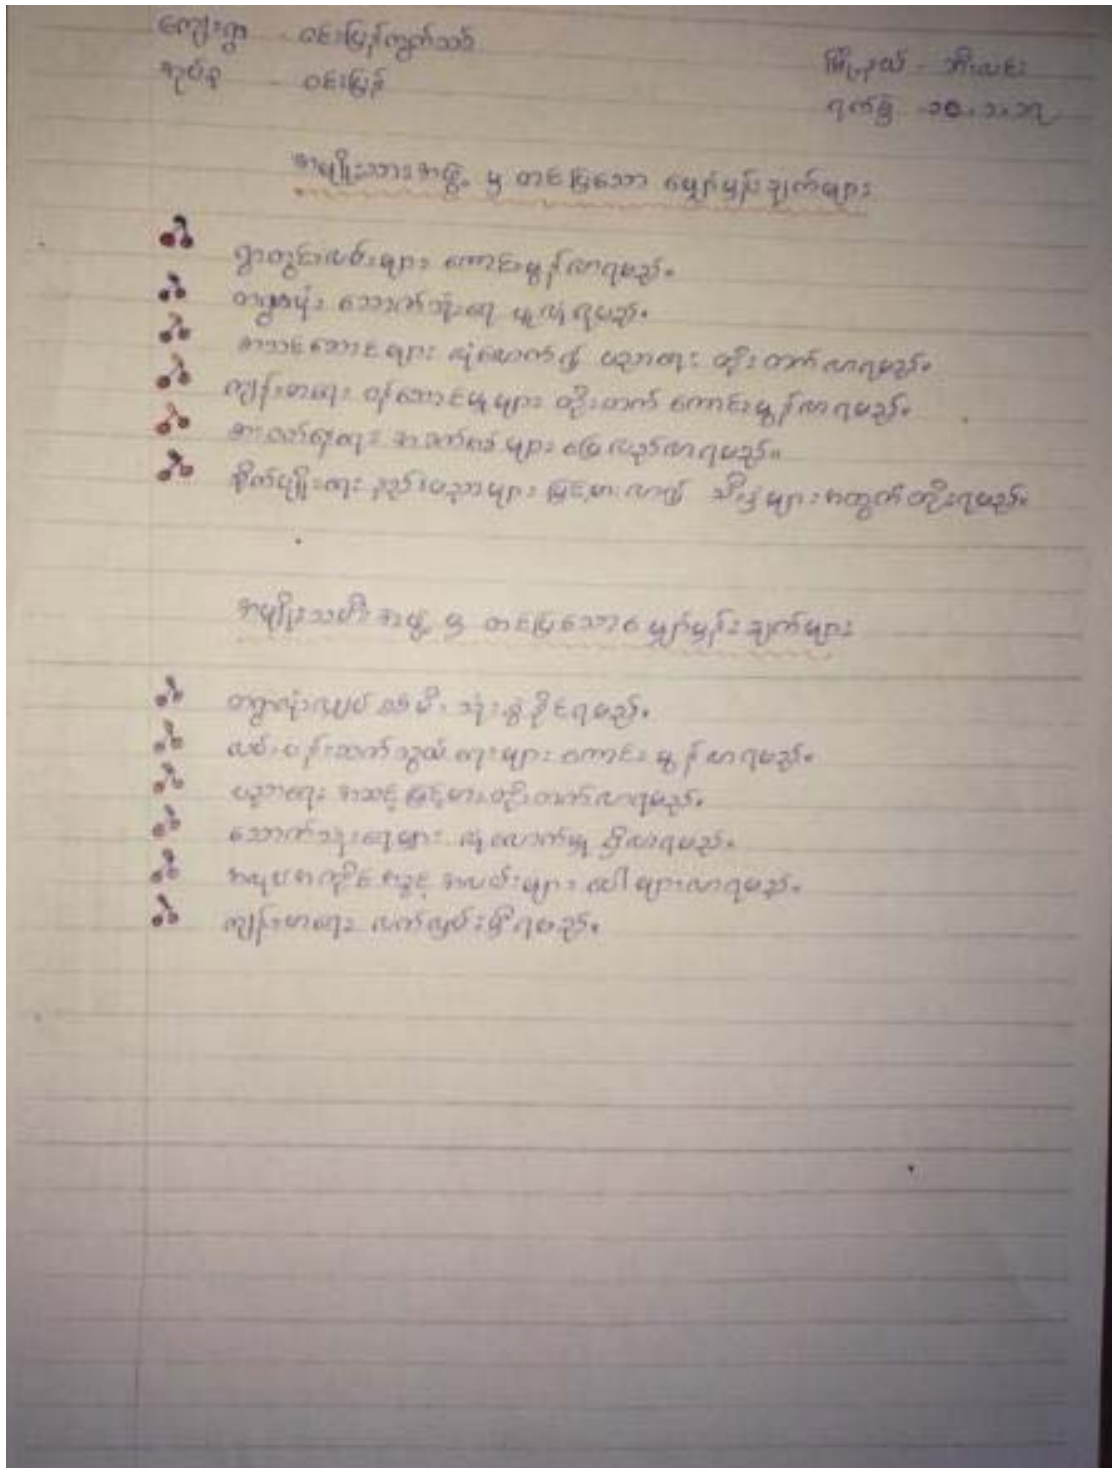 ကျေးရွာ - ဝင်းမြန်ကွက်သစ်
အုပ်စု - ဝင်းမြန်
မြို့နယ် - ဘီးလင်း
ရက်စွဲ - ၁၈.၁.၁၇
အမျိုးသားအဖွဲ့ မှ တင်ပြသော မျှော်မှန်းချက်များ
ရွာတွင်းလမ်းများ ကောင်းမွန်လာရမည်။
တရွာလုံး သောက်သုံးရေ ရရမည်။
စာသင်ဆောင်များ လုံလောက်၍ ပညာရေး တိုးတက်လာရမည်။
ကျန်းမာရေး ဝန်ဆောင်မှုများ တိုးတက် ကောင်းမွန်လာရမည်။
စားဝတ်နေရေး အခက်အခဲများ ပြေလည်လာရမည်။
စိုက်ပျိုးရေး နည်းပညာများ မြင့်မားလာ၍ သီးနှံများအထွက်တိုးရမည်။
အမျိုးသမီးအဖွဲ့ မှ တင်ပြသော မျှော်မှန်းချက်များ
တရွာလုံးလျှပ်စစ်မီး သုံးစွဲနိုင်ရမည်။
လမ်းပန်းဆက်သွယ်ရေးများ ကောင်းမွန်လာရမည်။
ပညာရေး အဆင့်မြင့်မားတိုးတက်လာရမည်။
သောက်သုံးရေများ လုံလောက်မှု ရှိလာရမည်။
အလုပ်အကိုင်အခွင့်အလမ်းများ ပေါများလာရမည်။
ကျန်းမာရေး လက်လှမ်းမှီရမည်။